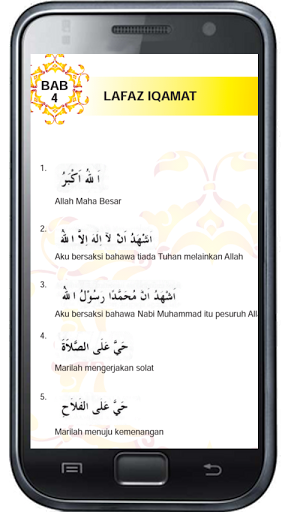 BAB
4
LAFAZ IQAMAT
1.
اَ للهُ اَكْبَرُ
Allah Maha Besar
2.
اَشْهَدُ اَنْ لَآ اِلٰهَ اِلَّا اللهُ
Aku bersaksi bahawa tiada Tuhan melainkan Allah
3.
اَشْهَدُ اَنَّ مُحَمَّدًا رَسُوْلُ اللهُ
Aku bersaksi bahawa Nabi Muhammad itu pesuruh All
4.
حَيَّ عَلَى الصَّلَاةَ
Marilah mengerjakan solat
5.
حَيَّ عَلَى الفَلَاحِ
Marilah menuju kemenangan